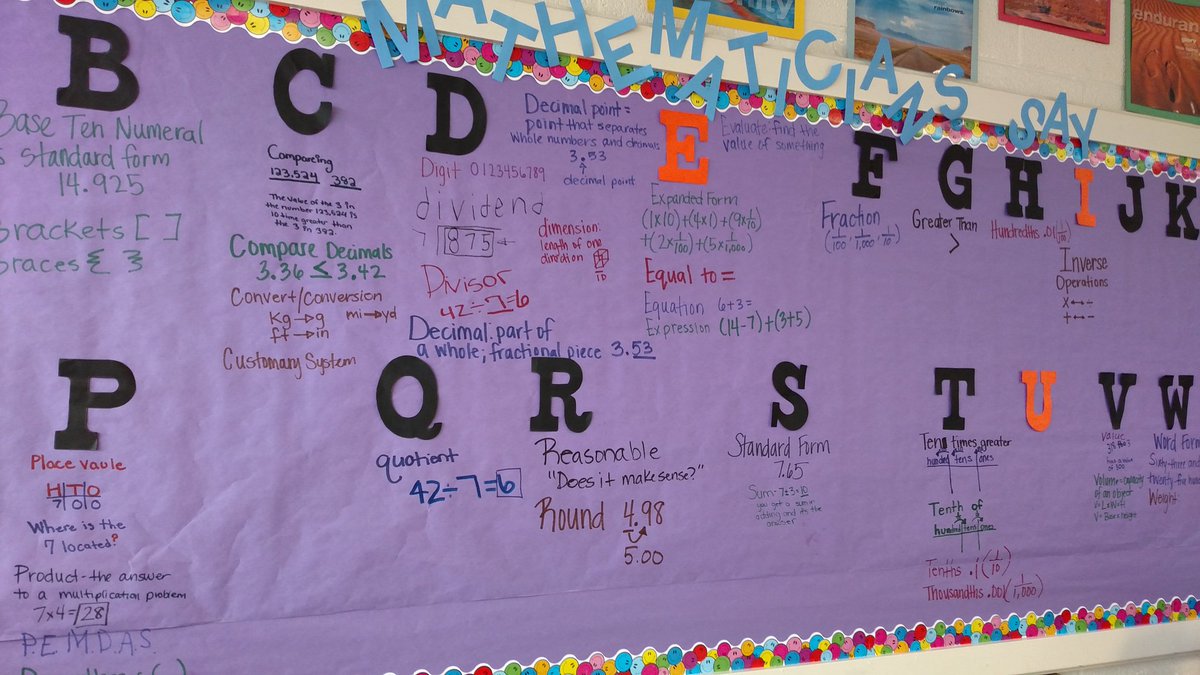 MATHEMATICIANS SAY
rainbows.
B
Base Ten Numeral
standard form
14.925
Brackets [ ]
Braces { }
C
Comparing
123,524 392
The value of the 3 in
the number 123,524 is
10 time greater than
the 3 in 392.
Compare Decimals
3.36 ≤ 3.42
Convert/Conversion
Kg→g mi→yd
ft→in
Customary System
D
Decimal point =
point that separates
whole numbers and decimals
3.53
↑
decimal point
Digit 0123456789
dividend
7 875
dimension:
length of one
direction
Divisor
42÷7=6
Decimal: part of
a whole; fractional piece 3.53
E
Evaluate-find the
value of something
Expanded Form
(1x10)+(4x1)+(9x1/10)
+(2x1/100)+(5x1/1,000)
Equal to =
Equation 6+3=
Expression (14-7)+(3+5)
F
Fraction
(1/100, 1/1,000, 1/10)
G
Greater Than
>
H
Hundredths .01(1/100)
I
Inverse
Operations
x↔÷
+↔-
J
K
P
Place Vaule
H T O
7 0 0
Where is the
7 located?
Product-the answer
to a multiplication problem
7x4=28
P.E.M.D.A.S.
Q
quotient
42÷7=6
R
Reasonable
"Does it make sense?"
Round 4.98
5.00
S
Standard Form
7.65
Sum-7+3=10
you get a sum in
adding and it's the
answer
T
Ten times greater
hundred tens ones
Tenth of
hundred tens ones
Tenths .1(1/10)
Thousandths .001(1/1,000)
U
V
Value
Volume=capacity
of an object
V=LxWxH
V=Base x height
W
Word Form
Sixty-three and
twenty-five
Weight